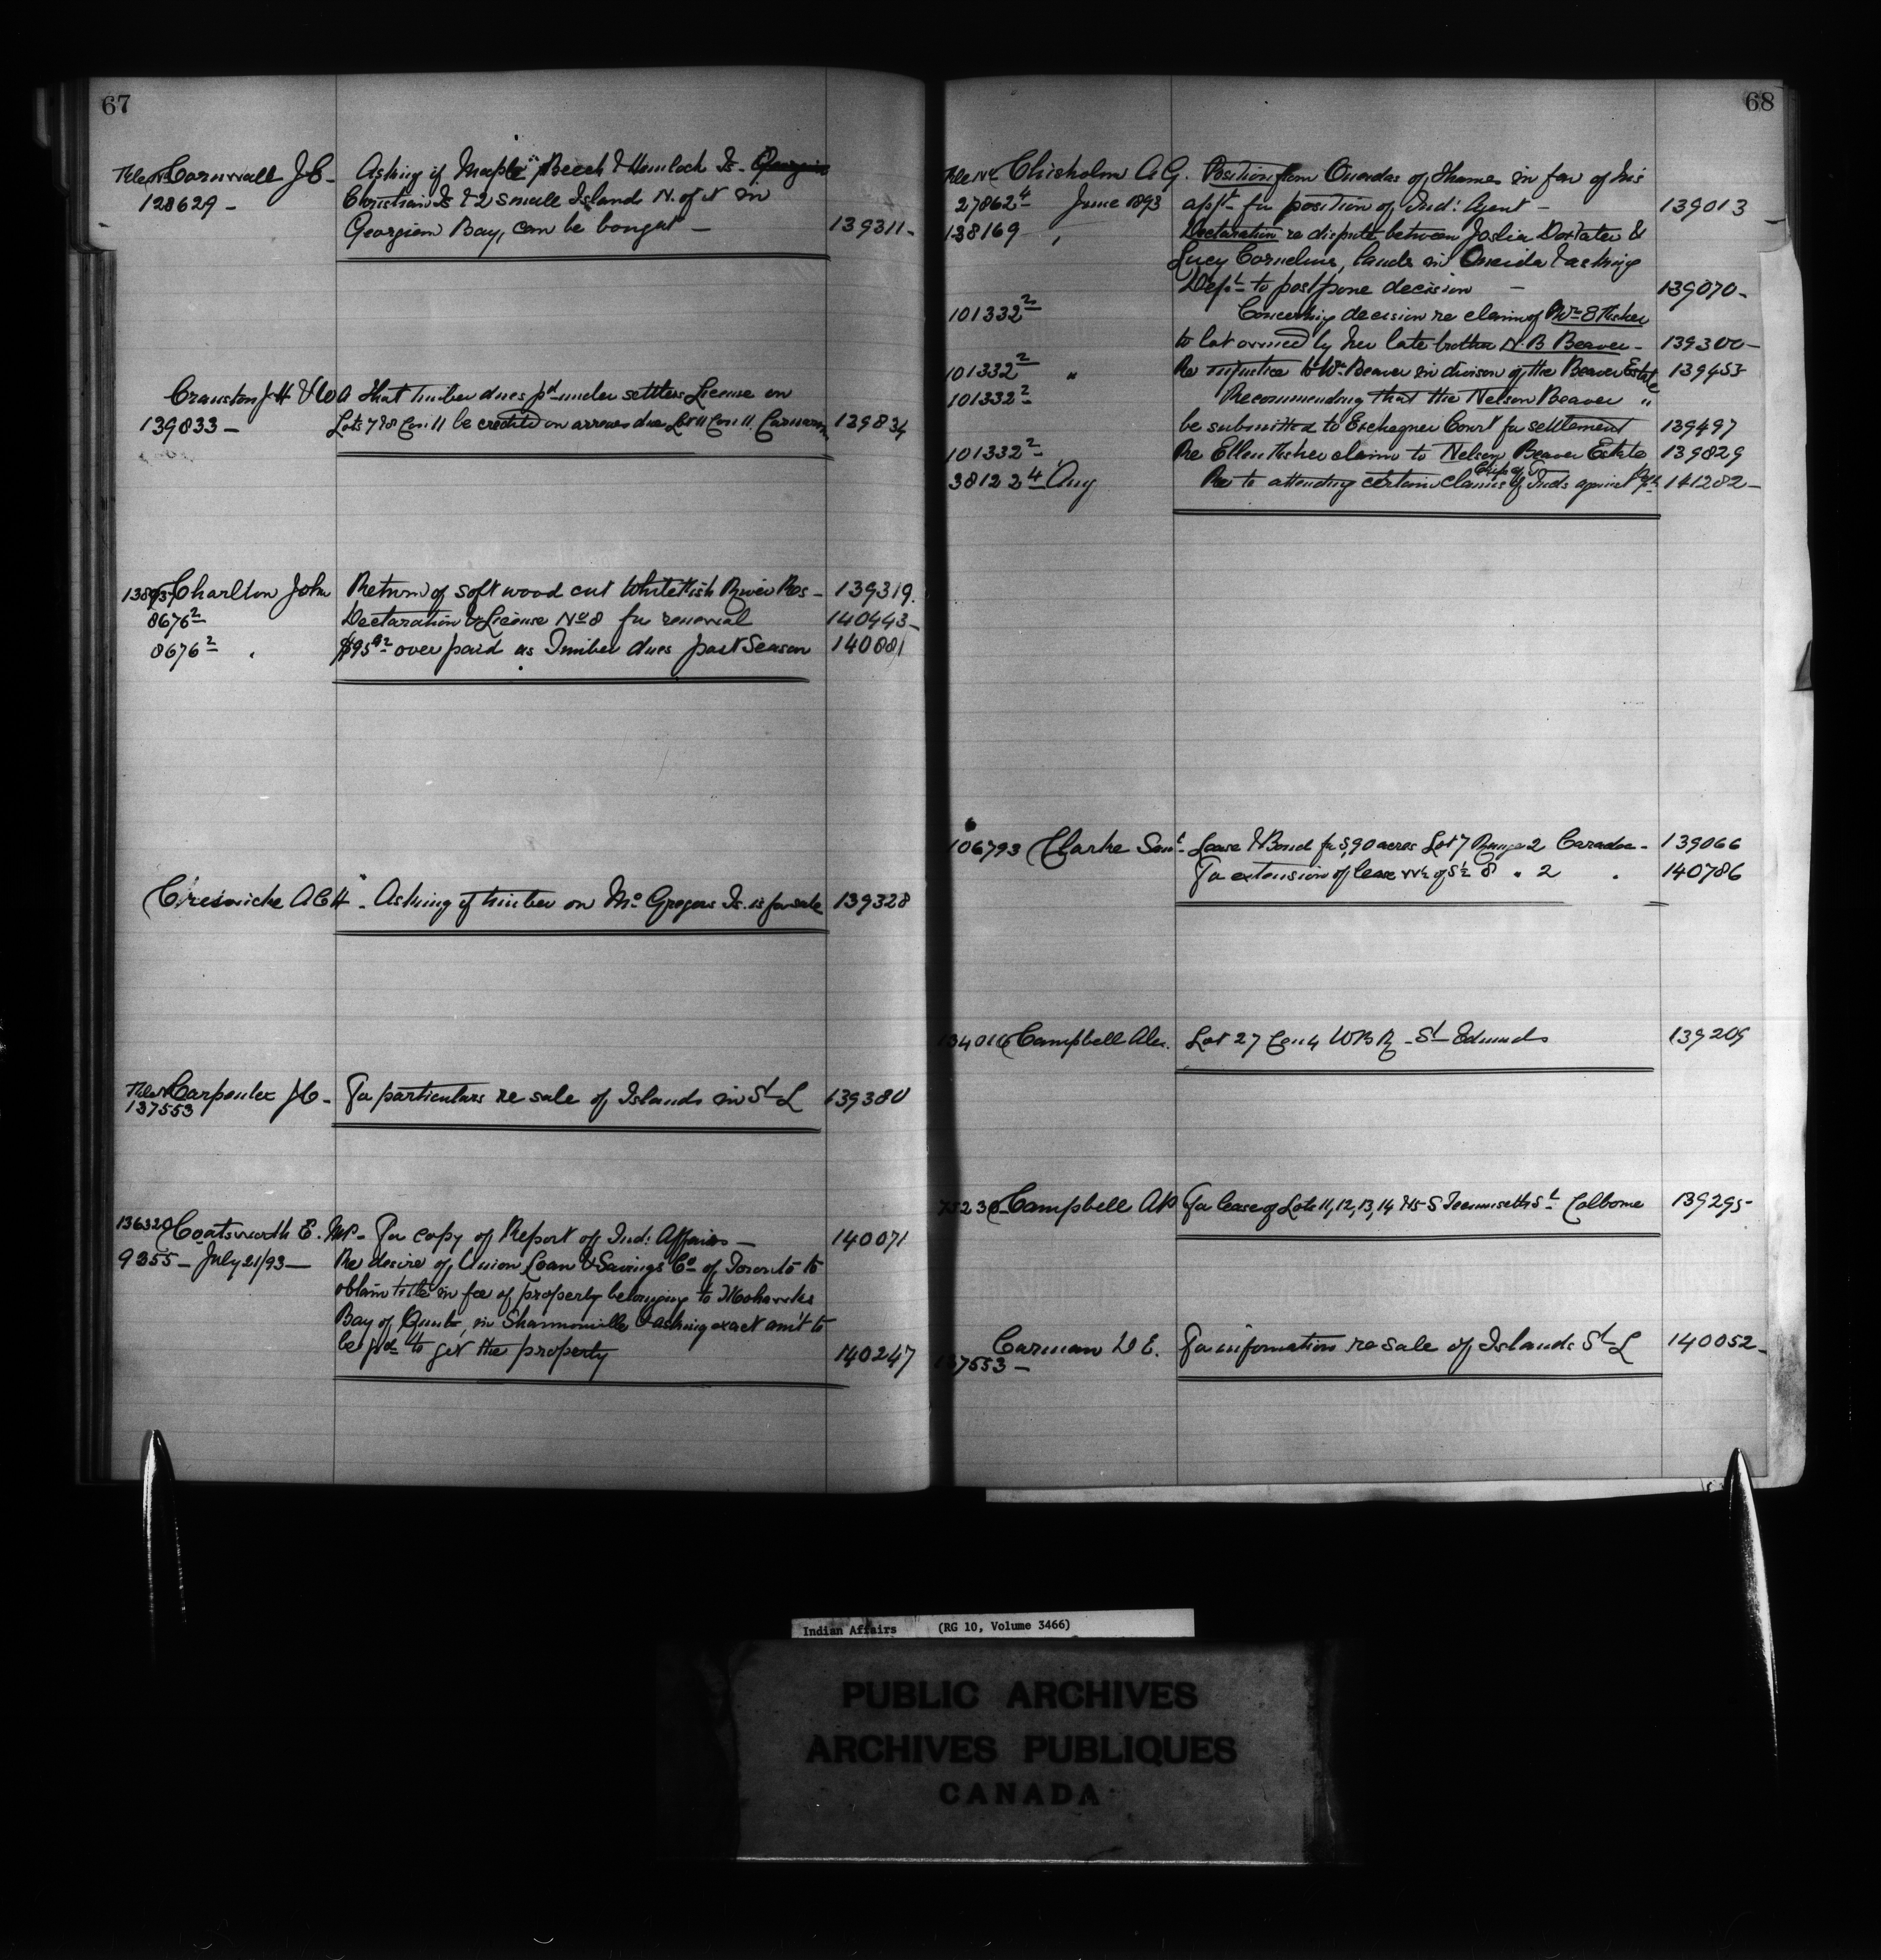 67
File No Cornwall J.C. - Asking if Maple, Beech & Hemlock Is.
128629 - Christian Is & 2 small Islands N. of it in
Georgian Bay, can be bought - 139311-
Cranston J.H & Co A that timber dues pd under settlers License on
139833 - Lots 7&8 Con 11 be credited on arrears due Lot 11 Con 11, Carnarvon 139834
Charlton John Return of soft wood cut Whitefish River Res - 139319.
8676² Declaration & License No 8 for renewal 140443-
8676² " $95 over paid as Timber dues past Season 140881
A C H - Asking if timber on Mc Gregors Is. is for sale 139328
File No Carpenter J.C - For particulars re sale of Islands in St L 139380
137553
136320 Coatsworth E. MP - For copy of Report of Ind: Affairs - 140071
9355 - July 21/93 - Re desire of Union Loan & Savings Co of Toronto to
obtain title in fee of property belonging to Mohawks
Bay of Quinte, in Shannonville & asking exact am't to
be pd to get the property 140247
68
File No Chisholm A.G. Petition from Oneidas of Thames in fav of his
27862⁴ - June 1893 apft for position of Ind: Agent - 139013
138169 " Declaration re dispute between Joslia Doxtater &
Lucy Cornelius, lands in Oneida & asking
Dept to postpone decision - 139070-
101332² Concerning decision re claim of Mrs E Fisher
to lot owned by her late brother N.B Beaver - 139300-
101332² " Re injustice to Wm Beaver in divison of the Beaver Estate 139453
101332² Recommending that the Nelson Beaver "
be submitted to Exchequer Court for settlement 139497
101332² Re Ellen Fisher claim to Nelson Beaver Estate 139829
38122⁴ Aug Re to attending certain claims of Chip of T Inds against 141282-
106793 Clarke Saml - Lease & Bond for S, 90 acres Lot 7 Range 2 Caradoc - 139066
For extension of lease W½ of S½ 8 " 2 " 140786
134016 Campbell Alex. Lot 27 Con 4 W B R - St Edmunds 139209
75230 Campbell A.P. For lease of Lots 11, 12, 13, 14 N5 S Tecumseth St Colborne 139295-
Carman D E. For information re sale of Islands St L 140052-
137553 -
Indian Affairs (RG 10, Volume 3466)
PUBLIC ARCHIVES
ARCHIVES PUBLIQUES
CANADA